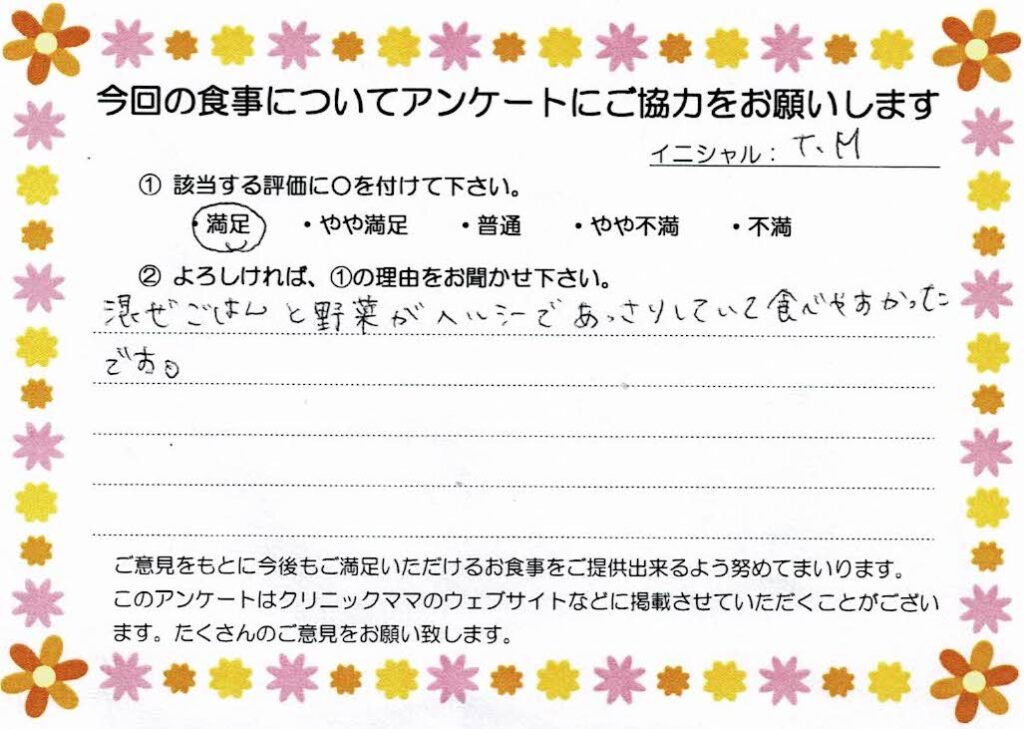 今回の食事についてアンケートにご協力をお願いします
イニシャル： T、M
① 該当する評価に〇を付けて下さい。
・満足 ・やや満足 ・普通 ・やや不満 ・不満
② よろしければ、①の理由をお聞かせ下さい。
混ぜごはんと野菜がヘルシーであっさりしていて食べやすかった
です。
ご意見をもとに今後もご満足いただけるお食事をご提供出来るよう努めてまいります。
このアンケートはクリニックママのウェブサイトなどに掲載させていただくことがござい
ます。たくさんのご意見をお願い致します。